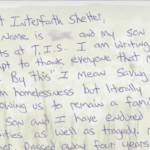 t Interfaith Shelter,
Name is and my son
ts at T.I.S. I am writing
pt to thank everyone that m
. By this" I mean saving
m homelessness but literally
owing us to remain a famil
son and I have endured
ties well as tragedy. M
passed away four years